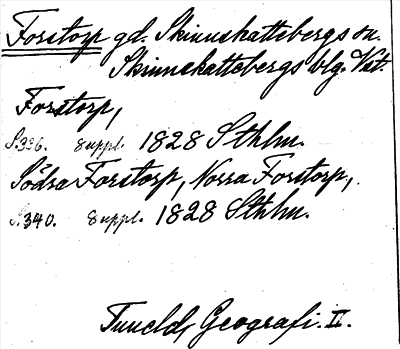 Forstorp gd. Skinnskattebergs sn.
Skinnskattebergs blg. Vst.
Forstorp,
S.336. suppl. 1828 Sthlm.
Södra Forstorp, Norra Forstorp,
S.340. suppl. 1828 Sthlm.
Tuneld, Geografi. II.